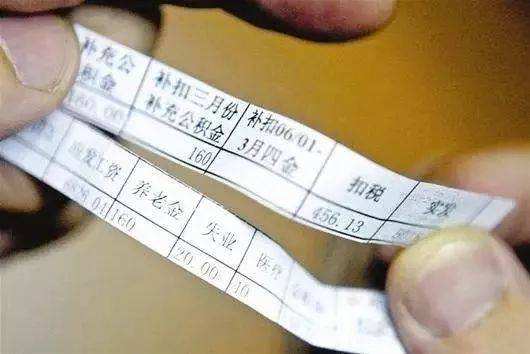 补充公积金 补扣三月份补充公积金 补扣06/01-3月四金 扣税 实发
160 456.13
应发工资 养老金 失业 医疗
160 20.00 10